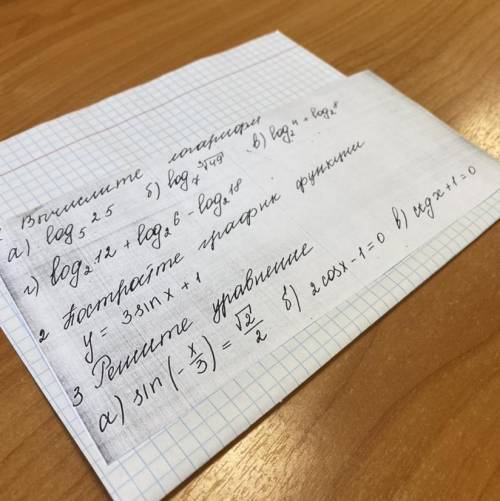 Вычислите логарифм
а) log₅ 25 б) log₇ ∛49 в) log₂ + log₂
г) log₂ 12 + log₂ 6 - log₂ 18
2 Постройте график функции
y = 3 sin x + 1
3 Решите уравнение
а) sin (-x/3) = √2/2 б) 2 cos x - 1 = 0 в) ctg x + 1 = 0